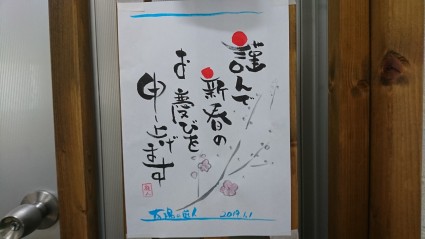 謹んで
新春の
お慶びを
申し上げます
2019.1.1